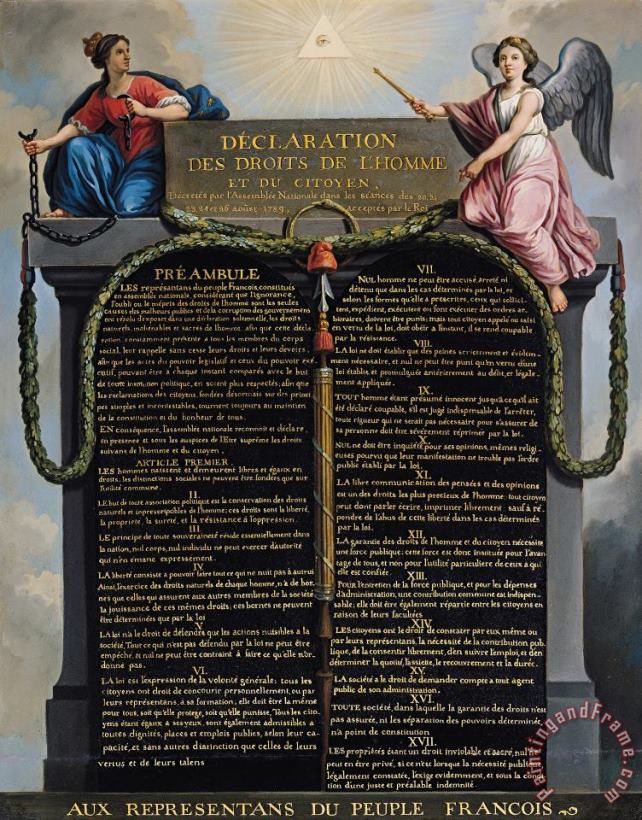 DÉCLARATION
DES DROITS DE L'HOMME
ET DU CITOYEN,
Décretés par l'Assemblée Nationale dans les séances des 20, 21
23, 24 et 26 aoûst 1789, acceptés par le Roi
PRÉAMBULE
LES représentans du peuple Francois, constitués
en assemblée nationale, considérant que l'ignorance,
l'oubli ou le mépris des droits de l'homme sont les seules
causes des malheurs publics et de la corruption des gouvernemens
ont résolu d'exposer dans une déclaration solemnelle, les droits
naturels, inaliénables et sacrés de l'homme; afin que cette décla
ration, constamment présente a tous les membres du corps
social, leur rappelle sans cesse leurs droits et leurs devoirs;
afin que les actes du pouvoir legislatif et ceux du pouvoir exé
cutif, pouvant être a chaque instant comparés avec le but
de toute institution politique, en soient plus respectés; afin que
les reclamations des citoyens, fondées désormais sur des princi
pes simples et incontestables, tournent toujours au maintien
de la constitution et du bonheur de tous.
EN conséquence, l'assemblée nationale reconnoit et déclare,
en presence et sous les auspices de l'Etre suprême les droits
suivans de l'homme et du citoyen,
ARTICLE PREMIER.
LES hommes naissent et demeurent libres et égaux en
droits. les distinctions sociales ne peuvent être fondées que sur
l'utilité commune.
II.
LE but de toute association politique est la conservation des droits
naturels et inprescriptibles de l'homme; ces droits sont la liberté,
la propriété, la sureté, et la résistance à l'oppression.
III.
LE principe de toute souveraineté réside essentiellement dans
la nation, nul corps, nul individu ne peut exercer d'autorité
qui n'en émane expressement.
IV.
LA liberté consiste a pouvoir faire tout ce qui ne nuit pas a autrui
Ainsi, l'exercice des droits naturels de chaque homme, n'a de bor-
nes que celles qui assurent aux autres membres de la société
la jouissance de ces mêmes droits; ces bornes ne peuvent
être déterminées que par la loi
V.
LA loi n'a le droit de défendre que les actions nuisibles a la
société. Tout ce qui n'est pas défendu par la loi ne peut être
empêché, et nul ne peut être contraint à faire ce qu'elle n'or-
donne pas.
VI.
LA loi est l'expression de la volonté générale; tous les
citoyens ont droit de concourir personnellement, ou par
leurs représentans, à sa formation; elle doit être la même
pour tous, soit qu'elle protege, soit qu'elle punisse, Tous les cito-
yens étant égaux à ses yeux, sont également admissibles a
toutes dignités, places et emplois publics, selon leur ca-
pacité, et sans autres distinction que celles de leurs
vertus et de leurs talens
VII.
NUL homme ne peut être accusé, arreté, ni
détenu que dans les cas déterminés par la loi, et
selon les formes qu'elle a prescrites, ceux qui sollici-
tent, expédient, exécutent ou font exécuter des ordres ar-
bitraires, doivent être punis; mais tout citoyen appelé ou saisi
en vertu de la loi, doit obéir a l'instant, il se rend coupable
par la résistance.
VIII.
LA loi ne doit établir que des peines strictement et évidem-
ment nécessaire, et nul ne peut être puni qu'en vertu d'une
loi établie et promulguée antérieurement au délit, et légale-
ment appliquée.
IX.
TOUT homme étant présumé innocent jusqu'a ce qu'il ait
été déclaré coupable, s'il est jugé indispensable de l'arrêter,
toute rigueur qui ne serait pas nécessaire pour s'assurer de
sa personne doit être sévèrement réprimée par la loi.
X.
NUL ne doit être inquiété pour ses opinions, mêmes religi-
euses pourvu que leur manifestation ne trouble pas l'ordre
public établi par la loi.
XI.
LA libre communication des pensées et des opinions
est un des droits les plus precieux de l'homme; tout citoyen
peut dont parler écrire, imprimer librement sauf à ré-
pondre de l'abus de cette liberté dans les cas déterminés
par la loi.
XII.
LA garantie des droits de l'homme et du citoyen nécessite
une force publique; cette force est donc instituée pour l'avan
tage de tous, et non pour l'utilité particuliere de ceux a qui
elle est confiée.
XIII.
POUR l'entretien de la force publique, et pour les dépenses
d'administration, une contribution commune est indispen-
sable; elle doit être également répartie entre les citoyens en
raison de leurs facultées
XIV.
LES citoyens ont le droit de constater par eux même ou
par leurs représentans, la nécessité de la contribution pub-
lique, de la consentir librement, d'en suivre l'emploi, et d'en
déterminer la quotité, l'assiette, le recouvrement et la durée.
XV.
LA société a le droit de demander compte a tout agent
public de son administration.
XVI.
TOUTE société, dans laquelle la garantie des droits n'est
pas assurée, ni les séparation des pouvoirs déterminée,
n'a point de constitution
XVII.
LES propriétés étant un droit inviolable et sacré, nul ne
peut en être privé, si ce n'est lorsque la nécessité publique,
légalement constatée, l'exige evidemment, et sous la condi
tion d'une juste et préalable indemnité.
AUX REPRESENTANS DU PEUPLE FRANCOIS
paintingandframe.com